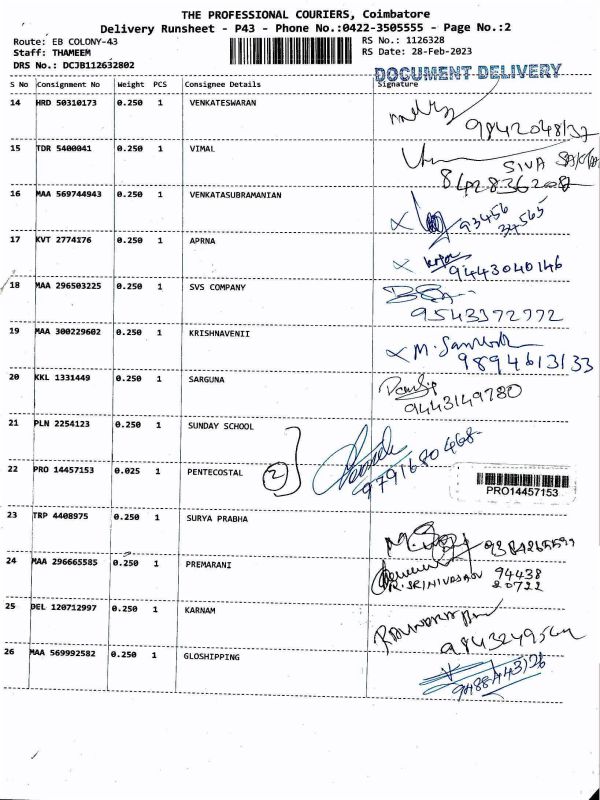 THE PROFESSIONAL COURIERS, Coimbatore
Delivery Runsheet - P43 - Phone No.:0422-3505555 - Page No.:2
Route: EB COLONY-43 RS No.: 1126328
Staff: THAMEEM RS Date: 28-Feb-2023
DRS No.: DCJB112632802
DOCUMENT DELIVERY
S No Consignment No Weight PCS Consignee Details Signature
14 HRD 50310173 0.250 1 VENKATESWARAN
9842048137
15 TDR 5400041 0.250 1 VIMAL
SIVA
16 MAA 569744943 0.250 1 VENKATASUBRAMANIAN
93456
34565
17 KVT 2774176 0.250 1 APRNA
9443040146
18 MAA 296503225 0.250 1 SVS COMPANY
9543372772
19 MAA 300229602 0.250 1 KRISHNAVENII
9894613133
20 KKL 1331449 0.250 1 SARGUNA
9443149780
21 PLN 2254123 0.250 1 SUNDAY SCHOOL
9791680468
22 PRO 14457153 0.025 1 PENTECOSTAL 2
PRO14457153
23 TRP 4408975 0.250 1 SURYA PRABHA
24 MAA 296665585 0.250 1 PREMARANI
R. SRINIVASAN 94438
20722
25 DEL 120712997 0.250 1 KARNAM
26 MAA 569992582 0.250 1 GLOSHIPPING
9488443126